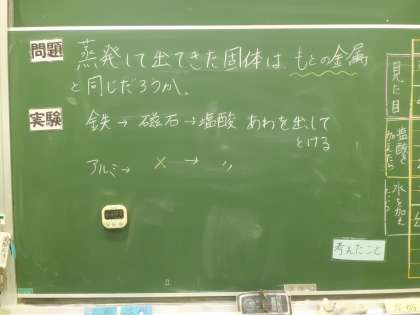 問題 蒸発して出てきた固体は もとの金属
と同じだろうか。
実験 鉄→磁石→塩酸 あわを出して
とける
アルミ→ × → 〃
見た目
塩酸を加えたら
水を加えたら
考えたこと